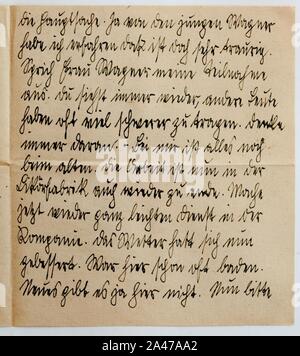 die Hauptsache. Ja von den jungen Wagner
habe ich erfahren daß ist doch sehr traurig.
Sprich Frau Wagner meine Teilnahme
aus. Du siehst immer wieder, andere Leute
haben oft viel schwerer zu tragen. Denke
immer daran. Bei mir ist alles noch
beim alten. Die Arbeit ist nun in der
Likörfabrik auch wieder zu ende. Mache
jetzt wieder ganz leichten Dienst in der
Kompanie. Das Wetter hatt sich nun
gebessert. War hier schon oft baden.
Neues gibt es ja hier nicht. Nun bitte
alamy
Image ID: 2A47AA2
www.alamy.com